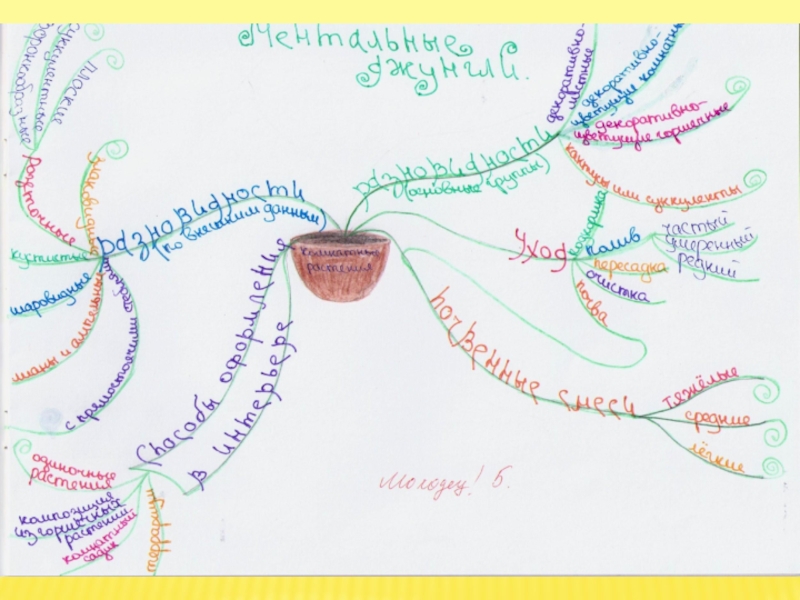 Ментальные
джунгли.
комнатные
растения
разновидности
(основные группы)
декоративно-
цветные
декоративно-
цветущие комнатные
декоративно-
цветущие горшечные
кактусы или суккуленты
Уход
подкормка
полив
частый
умеренный
редкий
пересадка
очистка
почва
почвенные смеси
тяжёлые
средние
лёгкие
Способы оформления
в интерьере
одиночные
растения
композиция
из горшечных
растений
комнатный
садик
террариум
разновидности
(по внешним данным)
злаковидные
розеточные
плоские
суккулентные
воронкообразные
кустистые
шаровидные
лианы и ампельные
с прямостоячими стеблями
Молодец! 5.